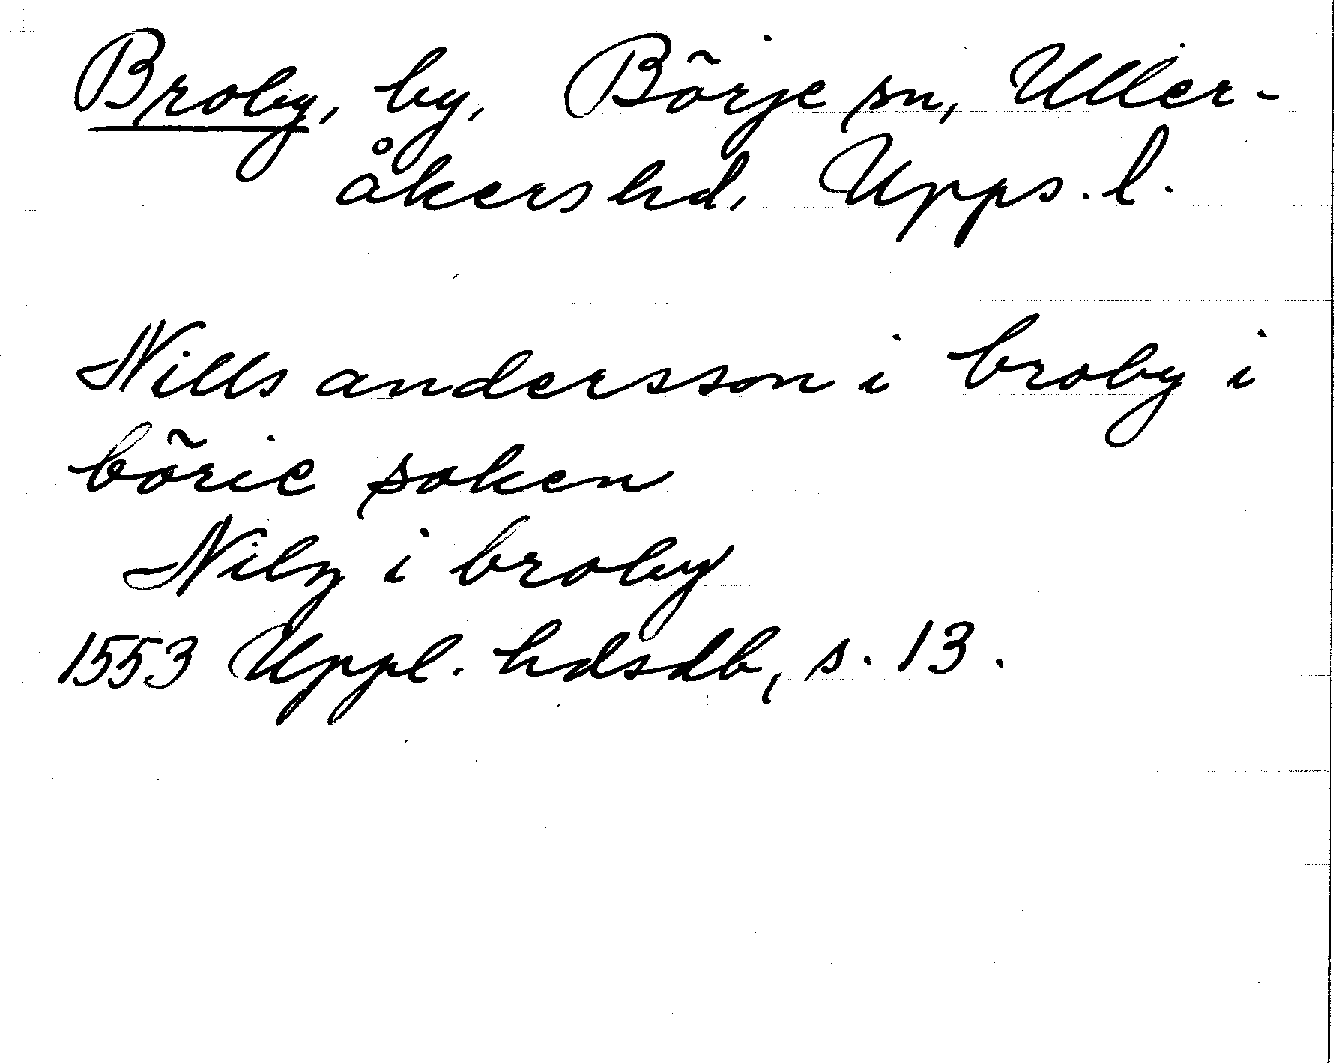 Broby, by, Börje sn, Uller-
åkers hd. Upps. l.
Nills andersson i broby i
börie soken
Nilz i broby
1553 Uppl. hdsdb, s. 13.